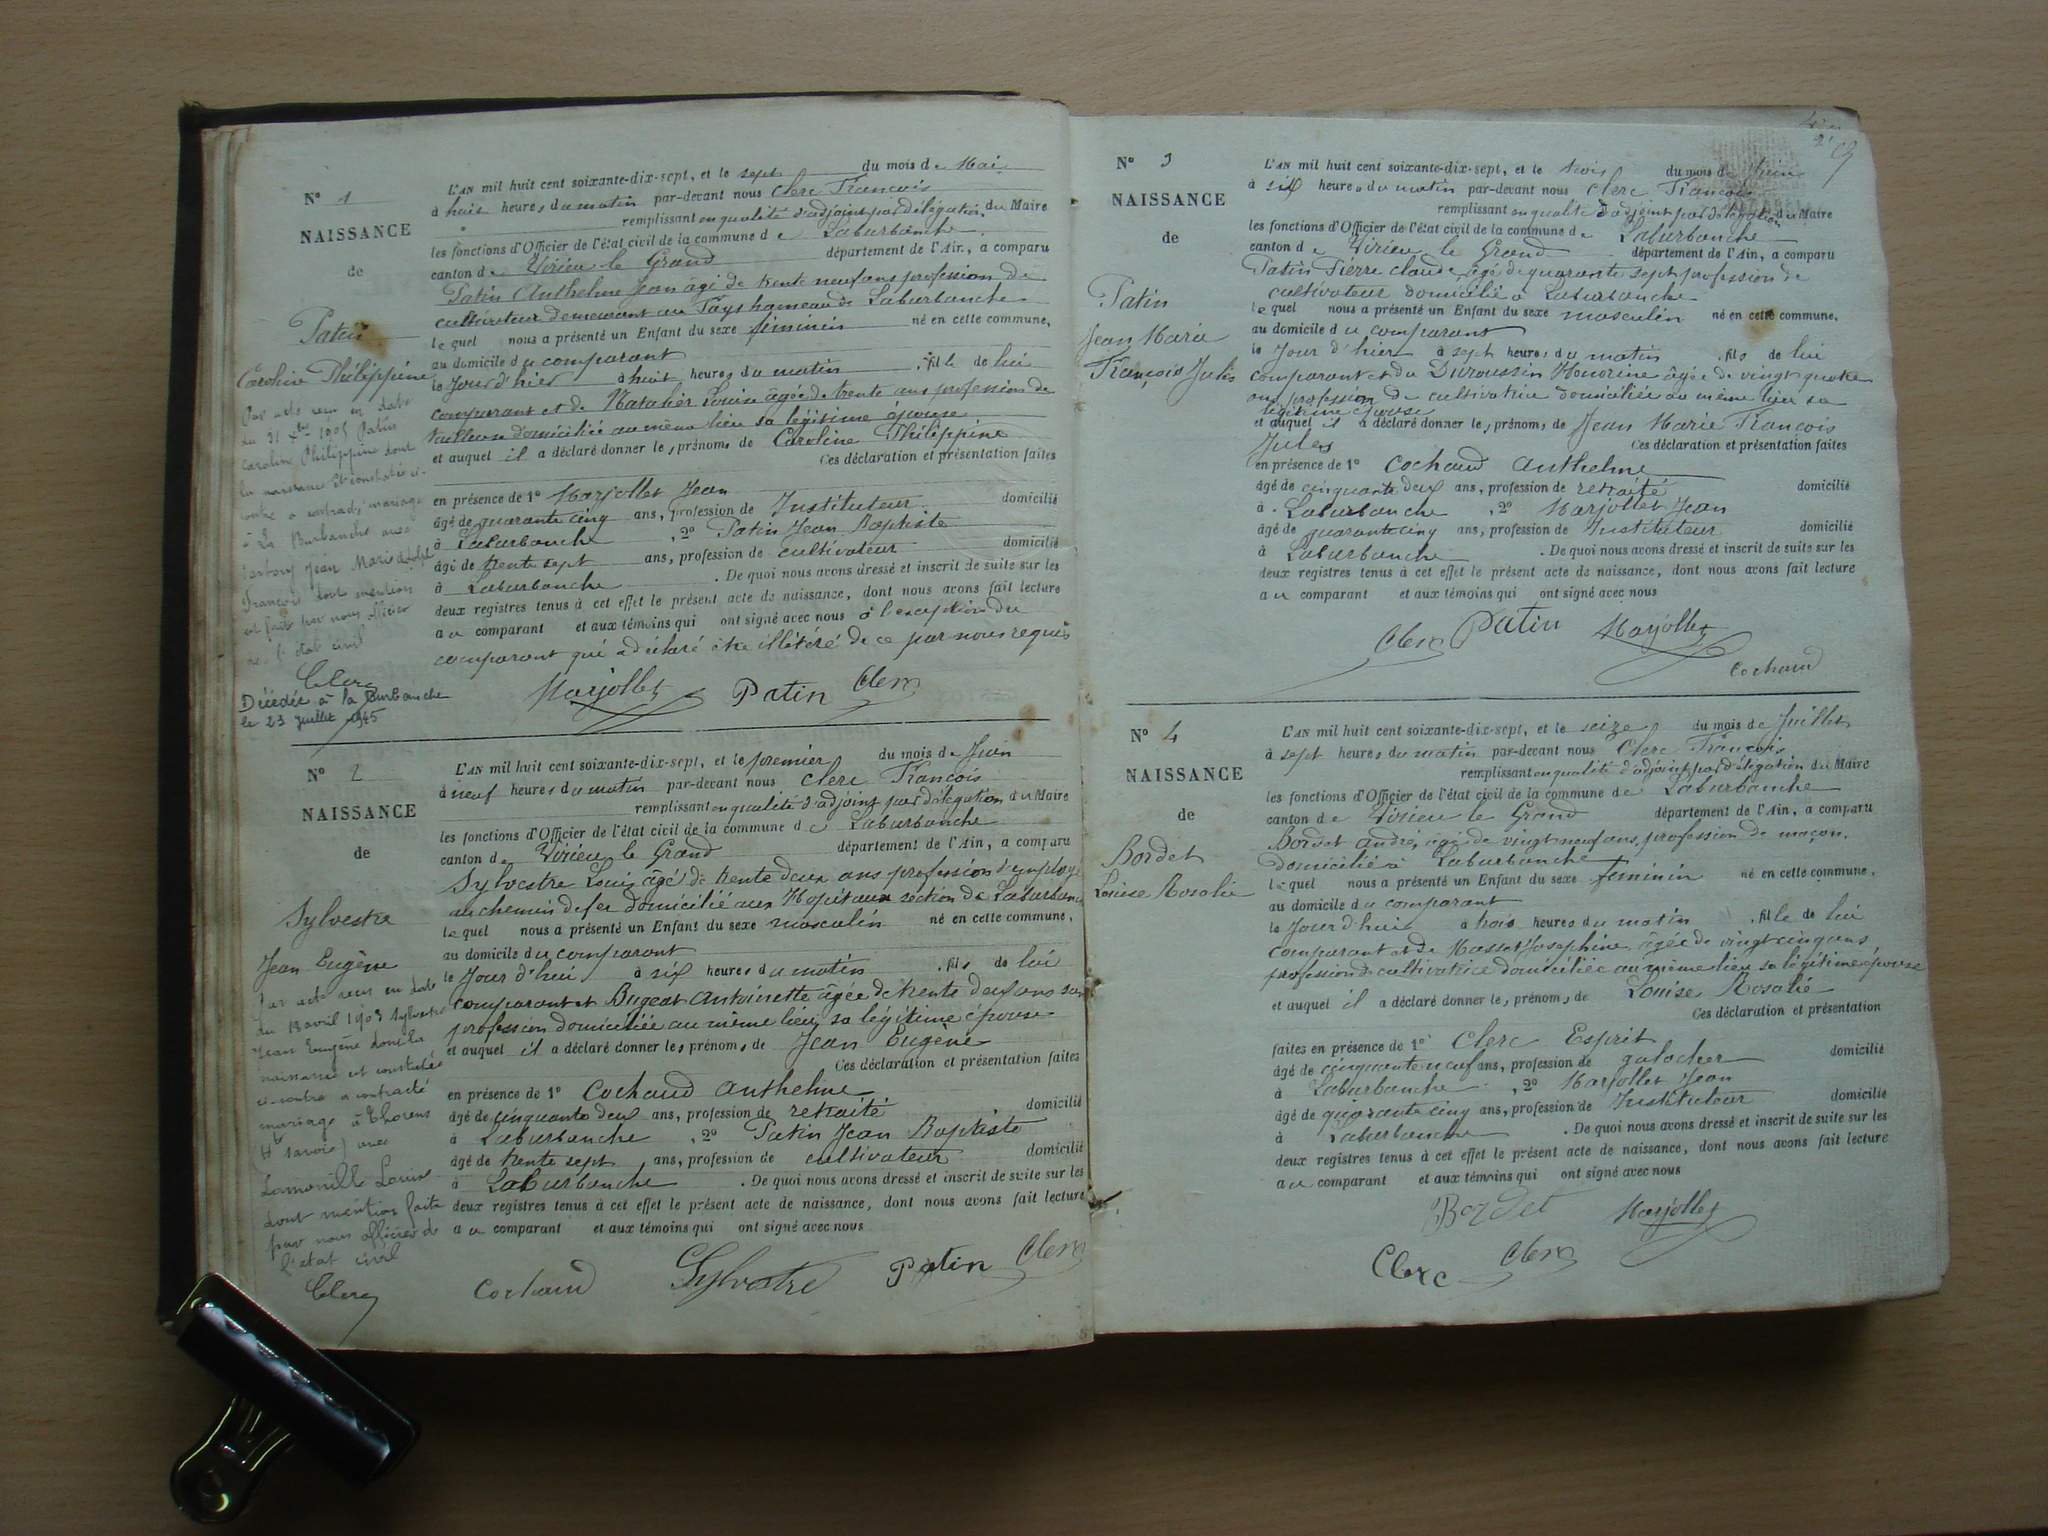 N° 1
NAISSANCE
de
Patin
Caroline Philippine
Par acte reçu en date
du 31 Xbre 1905 Patin
Caroline Philippine dont
la naissance est constatée ci-
contre a contracté mariage
à La Burbanche avec
Jean Marie
François dont mention
est faite par nous officier
de l'état civil
Clerc
Décédée à la Burbanche
le 23 juillet 1945
L'AN mil huit cent soixante-dix-sept, et le sept du mois de Mai
à huit heures du matin par-devant nous Clerc François
remplissant en qualité d'adjoint par délégation du Maire
les fonctions d'Officier de l'état civil de la commune de Laburbanche
canton de Virieu le Grand département de l'Ain, a comparu
Patin Anthelme Jean âgé de trente neuf ans profession de
cultivateur demeurant au Pays hameau de Laburbanche
lequel nous a présenté un Enfant du sexe féminin né en cette commune,
au domicile du comparant
le Jour d'hier à huit heures du matin , fille de lui
comparant et de Louise âgée de trente ans profession de
tailleuse domiciliée au même lieu sa légitime épouse
et auquel il a déclaré donner les prénoms de Caroline Philippine
Ces déclaration et présentation faites
en présence de 1° Marjollet Jean
âgé de quarante cinq ans, profession de Instituteur domicilié
à Laburbanche , 2° Patin Jean Baptiste
âgé de trente sept ans, profession de cultivateur domicilié
à Laburbanche . De quoi nous avons dressé et inscrit de suite sur les
deux registres tenus à cet effet le présent acte de naissance, dont nous avons fait lecture
au comparant et aux témoins qui ont signé avec nous à l'exception du
comparant qui a déclaré être illétéré de ce par nous requis
Marjollet Patin Clerc
N° 2
NAISSANCE
de
Sylvestre
Jean Eugène
Par acte reçu en date
du 18 avril 1903 Sylvestre
Jean Eugène dont la
naissance est constatée
ci-contre a contracté
mariage à Thorens
(Hte savoie) avec
Louise
dont mention faite
par nous officier de
l'état civil
Clerc
L'AN mil huit cent soixante-dix-sept, et le premier du mois de Juin
à neuf heures du matin par-devant nous Clerc François
remplissant en qualité d'adjoint par délégation du Maire
les fonctions d'Officier de l'état civil de la commune de Laburbanche
canton de Virieu le Grand département de l'Ain, a comparu
Sylvestre Louis âgé de trente deux ans profession d'employé
au chemin de fer domicilié aux Hopitaux section de Laburbanche
lequel nous a présenté un Enfant du sexe masculin né en cette commune,
au domicile du comparant
le Jour d'hui à six heures du matin , fils de lui
comparant et Bugeat Antoinette âgée de trente deux ans sans
profession domiciliée au même lieu sa légitime épouse
et auquel il a déclaré donner les prénoms de Jean Eugène
Ces déclaration et présentation faites
en présence de 1° Cochaud Anthelme
âgé de cinquante deux ans, profession de retraité domicilié
à Laburbanche , 2° Patin Jean Baptiste
âgé de trente sept ans, profession de cultivateur domicilié
à Laburbanche . De quoi nous avons dressé et inscrit de suite sur les
deux registres tenus à cet effet le présent acte de naissance, dont nous avons fait lecture
au comparant et aux témoins qui ont signé avec nous
Cochaud Sylvestre Patin Clerc
N° 3
NAISSANCE
de
Patin
Jean Marie
François Jules
L'AN mil huit cent soixante-dix-sept, et le trois du mois de Juin
à six heures du matin par-devant nous Clerc François
remplissant en qualité d'adjoint par délégation du Maire
les fonctions d'Officier de l'état civil de la commune de Laburbanche
canton de Virieu le Grand département de l'Ain, a comparu
Patin Pierre Claude âgé de quarante sept profession de
cultivateur domicilié à Laburbanche
lequel nous a présenté un Enfant du sexe masculin né en cette commune,
au domicile du comparant
le Jour d'hier à sept heures du matin , fils de lui
comparant et du Duroussin Honorine âgée de vingt quatre
ans profession de cultivatrice domiciliée au même lieu sa
légitime épouse
et auquel il a déclaré donner les prénoms de Jean Marie François
Jules Ces déclaration et présentation faites
en présence de 1° Cochaud Anthelme
âgé de cinquante deux ans, profession de retraité domicilié
à Laburbanche , 2° Marjollet Jean
âgé de quarante cinq ans, profession de Instituteur domicilié
à Laburbanche . De quoi nous avons dressé et inscrit de suite sur les
deux registres tenus à cet effet le présent acte de naissance, dont nous avons fait lecture
au comparant et aux témoins qui ont signé avec nous
Clerc Patin Marjollet
Cochaud
N° 4
NAISSANCE
de
Bordet
Louise Rosalie
L'AN mil huit cent soixante-dix-sept, et le seize du mois de Juillet
à sept heures du matin par-devant nous Clerc François
remplissant en qualité d'adjoint par délégation du Maire
les fonctions d'Officier de l'état civil de la commune de Laburbanche
canton de Virieu le Grand département de l'Ain, a comparu
Bordet André, âgé de vingt neuf ans, profession de maçon,
domicilié à Laburbanche
lequel nous a présenté un Enfant du sexe féminin né en cette commune,
au domicile du comparant
le Jour d'hui à trois heures du matin , fille de lui
comparant et de Masset Josephine âgée de vingt cinq ans
profession de cultivatrice domiciliée au même lieu sa légitime épouse
et auquel il a déclaré donner les prénoms de Louise Rosalie
Ces déclaration et présentation
faites en présence de 1° Clerc Esprit
âgé de cinquante neuf ans, profession de galocher domicilié
à Laburbanche , 2° Marjollet Jean
âgé de quarante cinq ans, profession de Instituteur domicilié
à Laburbanche . De quoi nous avons dressé et inscrit de suite sur les
deux registres tenus à cet effet le présent acte de naissance, dont nous avons fait lecture
au comparant et aux témoins qui ont signé avec nous
Bordet Marjollet
Clerc Clerc